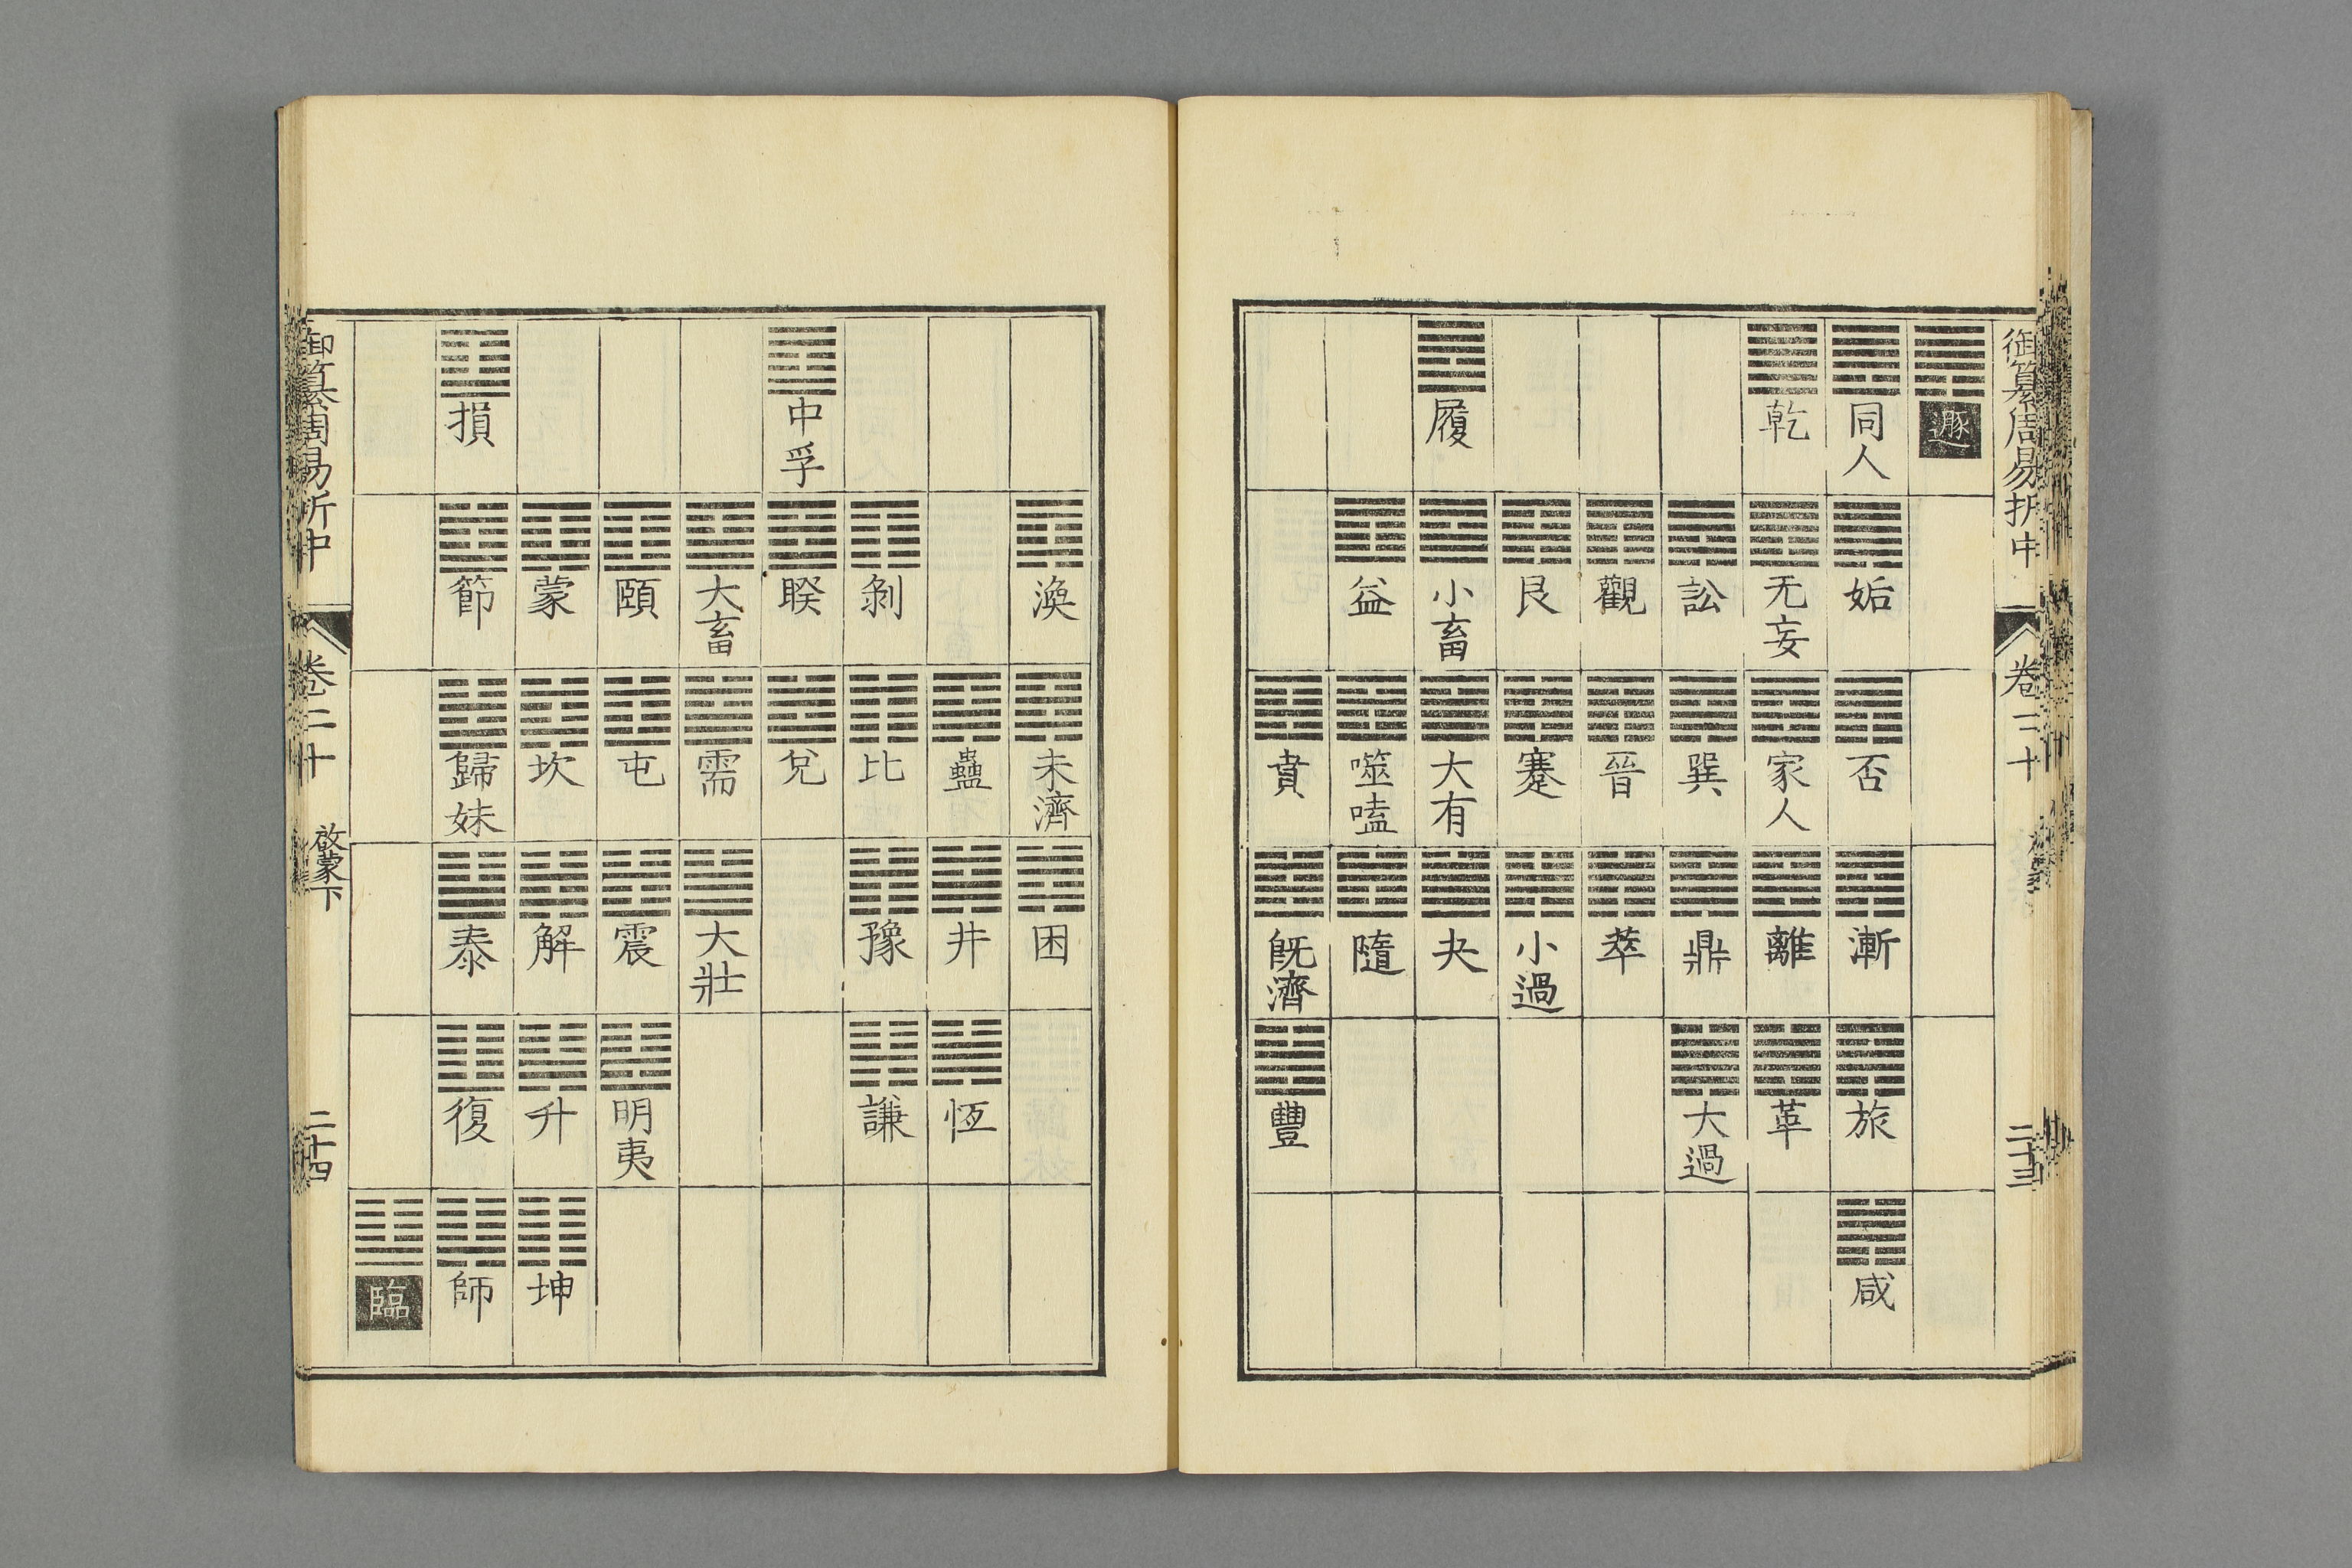 御纂周易折中 卷二十 二十三
遯
同人 姤 否 漸 旅 咸
乾 无妄 家人 離 革
訟 巽 鼎 大過
觀 晉 萃
艮 蹇 小過
履 小畜 大有 夬
益 噬嗑 隨
賁 旣濟 豐
渙 未濟 困
蠱 井 恆
剝 比 豫 謙
中孚 睽 兌
大畜 需 大壯
頤 屯 震 明夷
蒙 坎 解 升 坤
損 節 歸妹 泰 復 師
臨
御纂周易折中 卷二十 啟蒙下 二十四